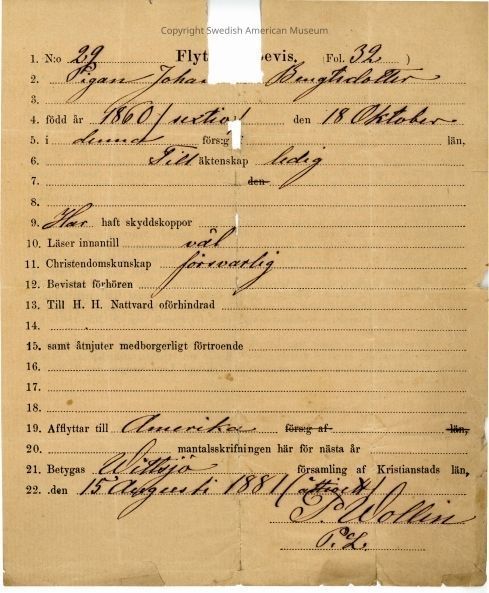 Copyright Swedish American Museum
1. N:o 29 Flyt bevis. (Fol. 32 )
2. Pigan Joha Bengtsdotter
3.
4. född år 1860 (sextio) den 18 Oktober
5. i denna förs:g län,
6. Till äktenskap ledig
7. den
8.
9. Har haft skyddskoppor
10. Läser innantill väl
11. Christendomskunskap försvarlig
12. Bevistat förhören
13. Till H. H. Nattvard oförhindrad
14.
15. samt åtnjuter medborgerligt förtroende
16.
17.
18.
19. Afflyttar till Amerika förs:g af län,
20. mantalsskrifningen här för nästa år
21. Betygas Wittsjö församling af Kristianstads län,
22. den 15 Augusti 1881 (åttioett)
P. Wollin
P. L.